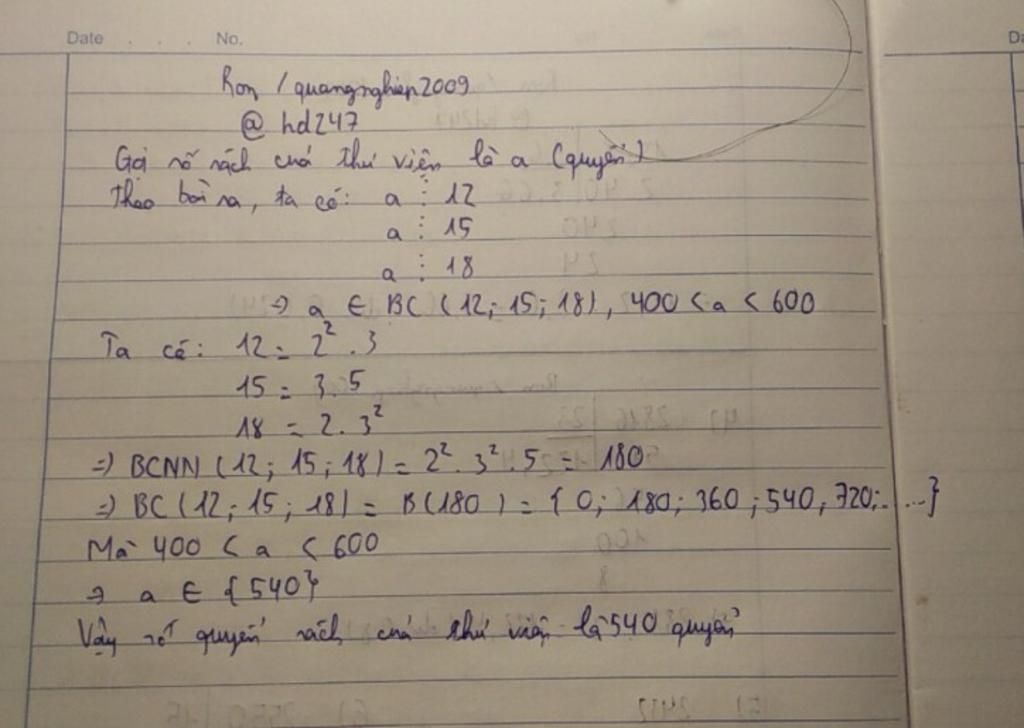 Date . . . No.
Ron / quangnghiep2009
@ hd247
Gọi số sách của thư viện là a (quyển)
Theo bài ra, ta có: a ⋮ 12
a ⋮ 15
a ⋮ 18
⇒ a ∈ BC (12; 15; 18), 400 < a < 600
Ta có: 12 = 2² . 3
15 = 3.5
18 = 2.3²
⇒ BCNN (12; 15; 18) = 2² . 3² . 5 = 180
⇒ BC (12; 15; 18) = B(180) = {0; 180; 360; 540; 720; ....}
Mà 400 < a < 600
⇒ a ∈ {540}
Vậy số quyển sách của thư viện là 540 quyển